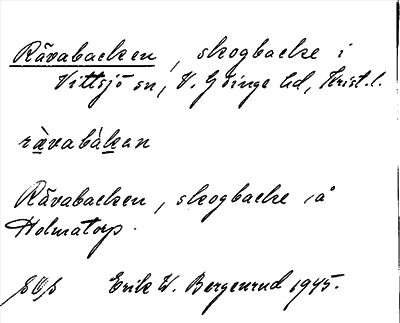 Rävabacken, skogbacke i
Vittsjö sn, V. Göinge hd, Krist. l.
rävabàkan
Rävabacken, skogbacke å
Holmatorp.
Erik W. Bergenrud 1945.